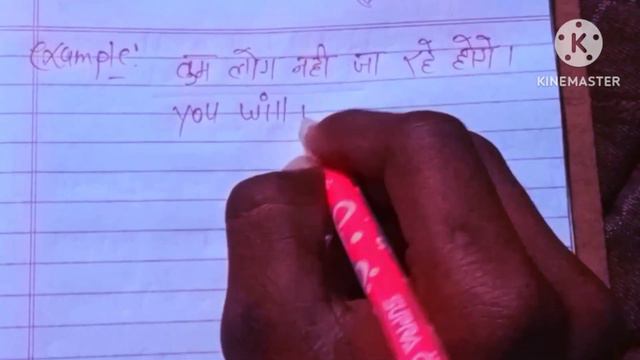 Example: तुम लोग नही जा रहे होगे।
you will
KINEMASTER
SUPRA